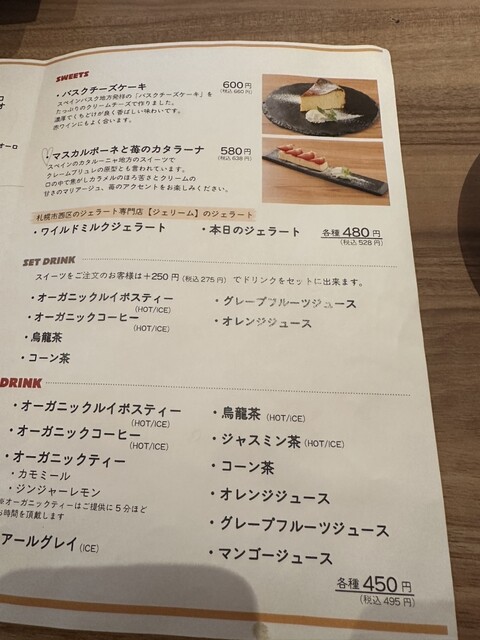 SWEETS
・バスクチーズケーキ 600円
(税込 660 円)
スペインバスク地方発祥の「バスクチーズケーキ」を
たっぷりのクリームチーズで作りました。
濃厚でくちどけが良く香ばしい味わいです。
赤ワインにもよく合います。
・マスカルポーネと苺のカタラーナ 580円
(税込 638 円)
スペインのカタルーニャ地方のスイーツで
クレームブリュレの原型とも言われています。
口の中で焦がしカラメルのほろ苦さとクリームの
甘さのマリアージュ、苺のアクセントをお楽しみください。
札幌市西区のジェラート専門店【ジェリーム】のジェラート
・ワイルドミルクジェラート ・本日のジェラート 各種 480 円
(税込 528 円)
SET DRINK
スイーツをご注文のお客様は＋250 円 (税込 275 円) でドリンクをセットに出来ます。
・オーガニックルイボスティー
(HOT/ICE)
・オーガニックコーヒー
(HOT/ICE)
・烏龍茶
・コーン茶
・グレープフルーツジュース
・オレンジジュース
DRINK
・オーガニックルイボスティー
(HOT/ICE)
・オーガニックコーヒー
(HOT/ICE)
・オーガニックティー
・カモミール
・ジンジャーレモン
※オーガニックティーはご提供に５分ほど
お時間を頂戴します
アールグレイ (ICE)
・烏龍茶 (HOT/ICE)
・ジャスミン茶 (HOT/ICE)
・コーン茶
・オレンジジュース
・グレープフルーツジュース
・マンゴージュース
各種 450 円
(税込 495 円)